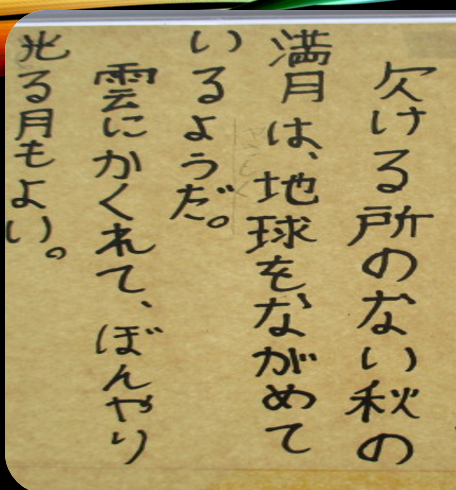 欠ける所のない秋の
満月は、地球をながめて
いるようだ。
雲にかくれて、ぼんやり
光る月もよい。